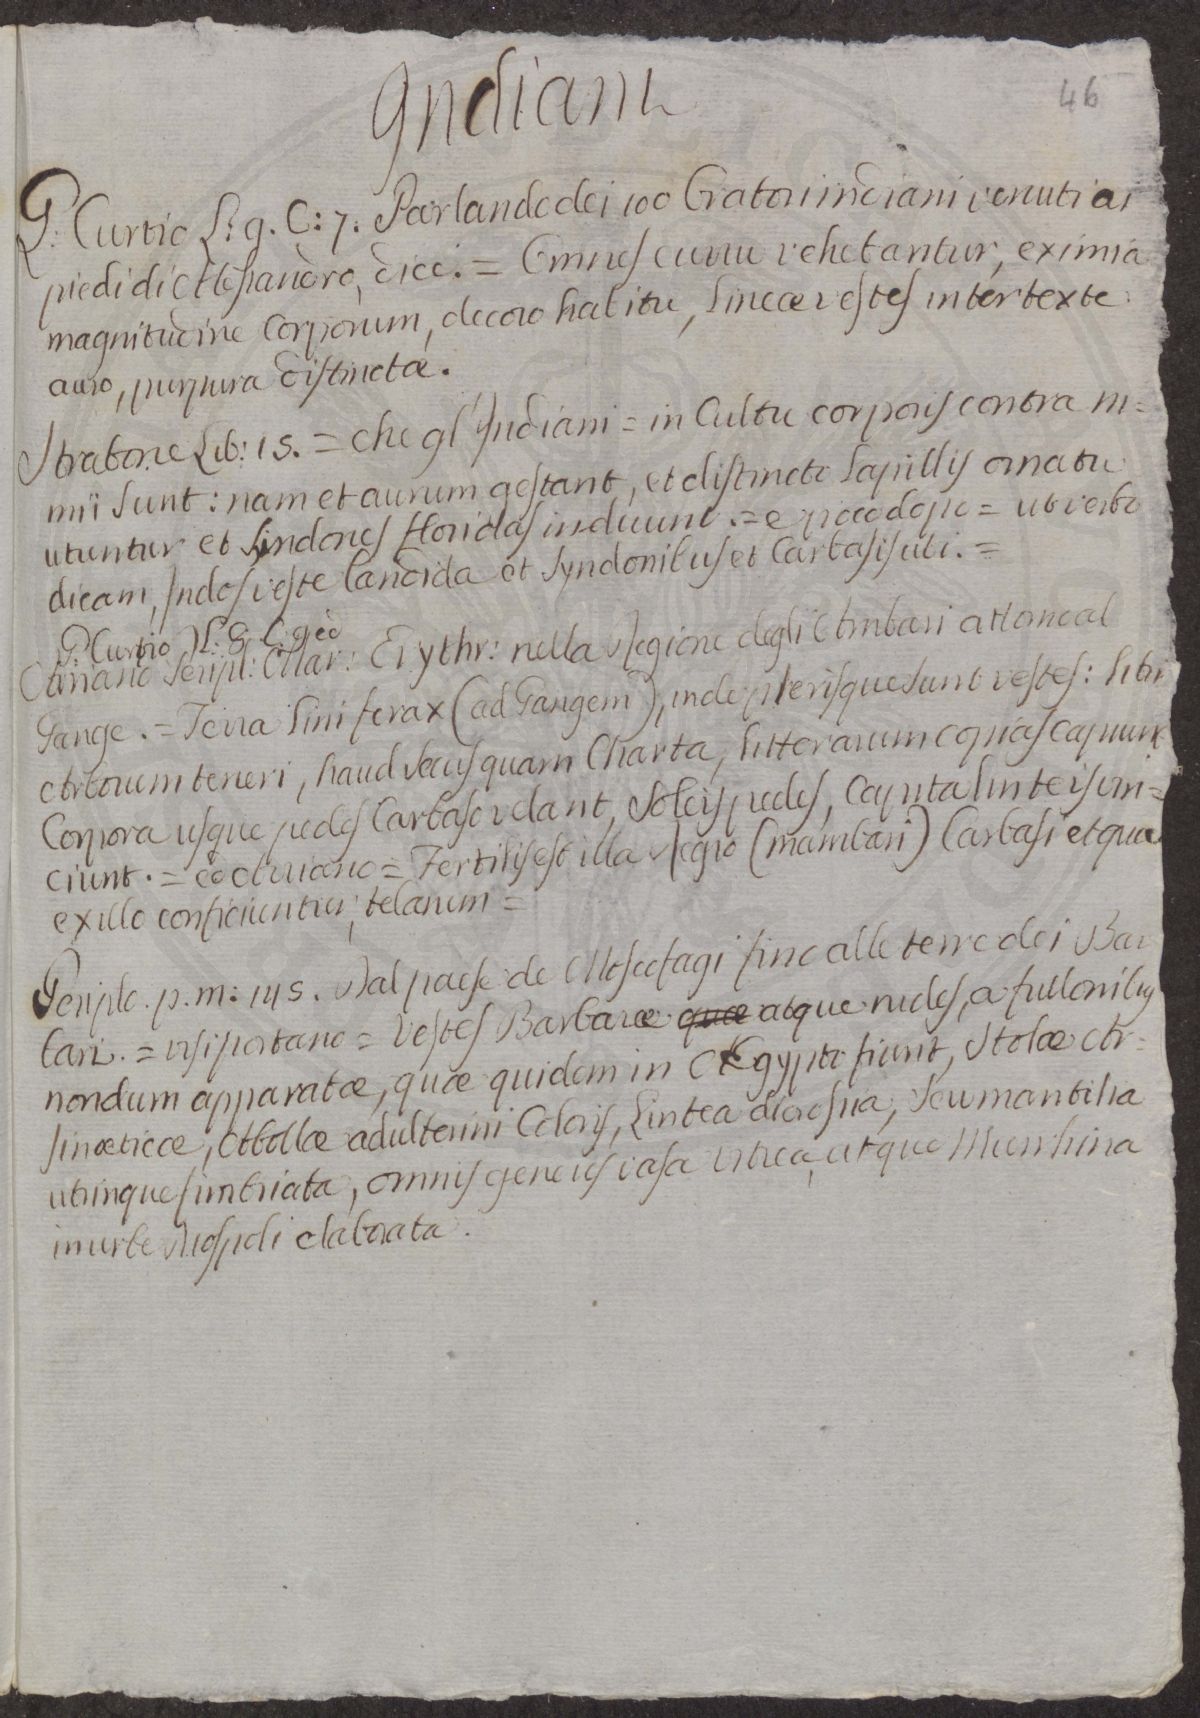 Indiani
46
Q: Curtio L. 9. C: 7. Parlando dei 100 Oratori indiani venuti ai
piedi di Alesandro, dice. = Omnes curru vehebantur, eximia
magnitudine corporum, decoro habitu, lineae vestes intertexte
auro, purpura distinctae.
Strabone Lib: 15. = che gl'Indiani = in Cultu corporis contra ni=
mii sunt: nam et aurum gestant, et distincto lapillis ornatu
utuntur et Sindones floridas induunt. = e poco dopo = ut verbo
dicam, Indos veste candida et Syndonibus et Carbasis uti. =
Q Curtio L: 8. C. 9
Arriano Peripl: Mar: Erythr: nella Regione degli Ambari attorno al
Gange. = Terra lini ferax (ad Gangem), inde plerisque sunt vestes: libri
Arborum teneri, haud secus quam Charta, litterarum copias capiunt
Corpora usque pedes Carbaso velant, Soleis pedes, Capita linteis vin=
ciunt. = ed Arriano = Fertilis est illa Regio (mambari) Carbasi et quae
ex illo conficiuntur, telarum =
Periplo. p. m: 145. Dal paese de Moscofagi fino alle terre dei Bar
bari. = vi si portano = Vestes Barbarae quae atque rudes, a fullonibus
nondum apparatae, quae quidem in AEgypto fiunt, Stolae Ar=
sinoeticae, Abollae adulterini Coloris, Lintea dicrosia, seu mantilia
utrinque fimbriata, omnis generis vasa vitrea, atque Murrhina
in urbe Diospoli elaborata.